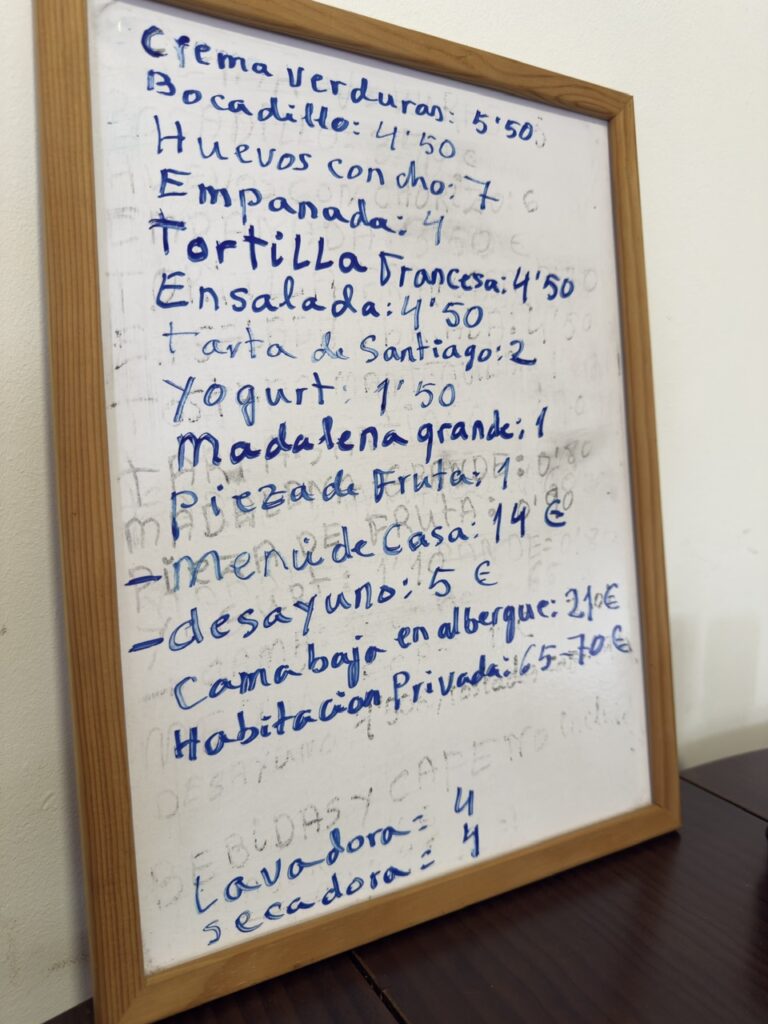 Crema verduras: 5'50
Bocadillo: 4'50
Huevos con cho: 7
Empanada: 4
Tortilla Francesa: 4'50
Ensalada: 4'50
Tarta de Santiago: 2
Yogurt: 1'50
Madalena grande: 1
Pieza de Fruta: 1
- Menú de Casa: 14 €
- desayuno: 5 €
Cama baja en albergue: 21€
Habitacion Privada: 65-70 €
DESAYUNO
BEBIDAS Y CAFE NO
Lavadora = 4
secadora = 4